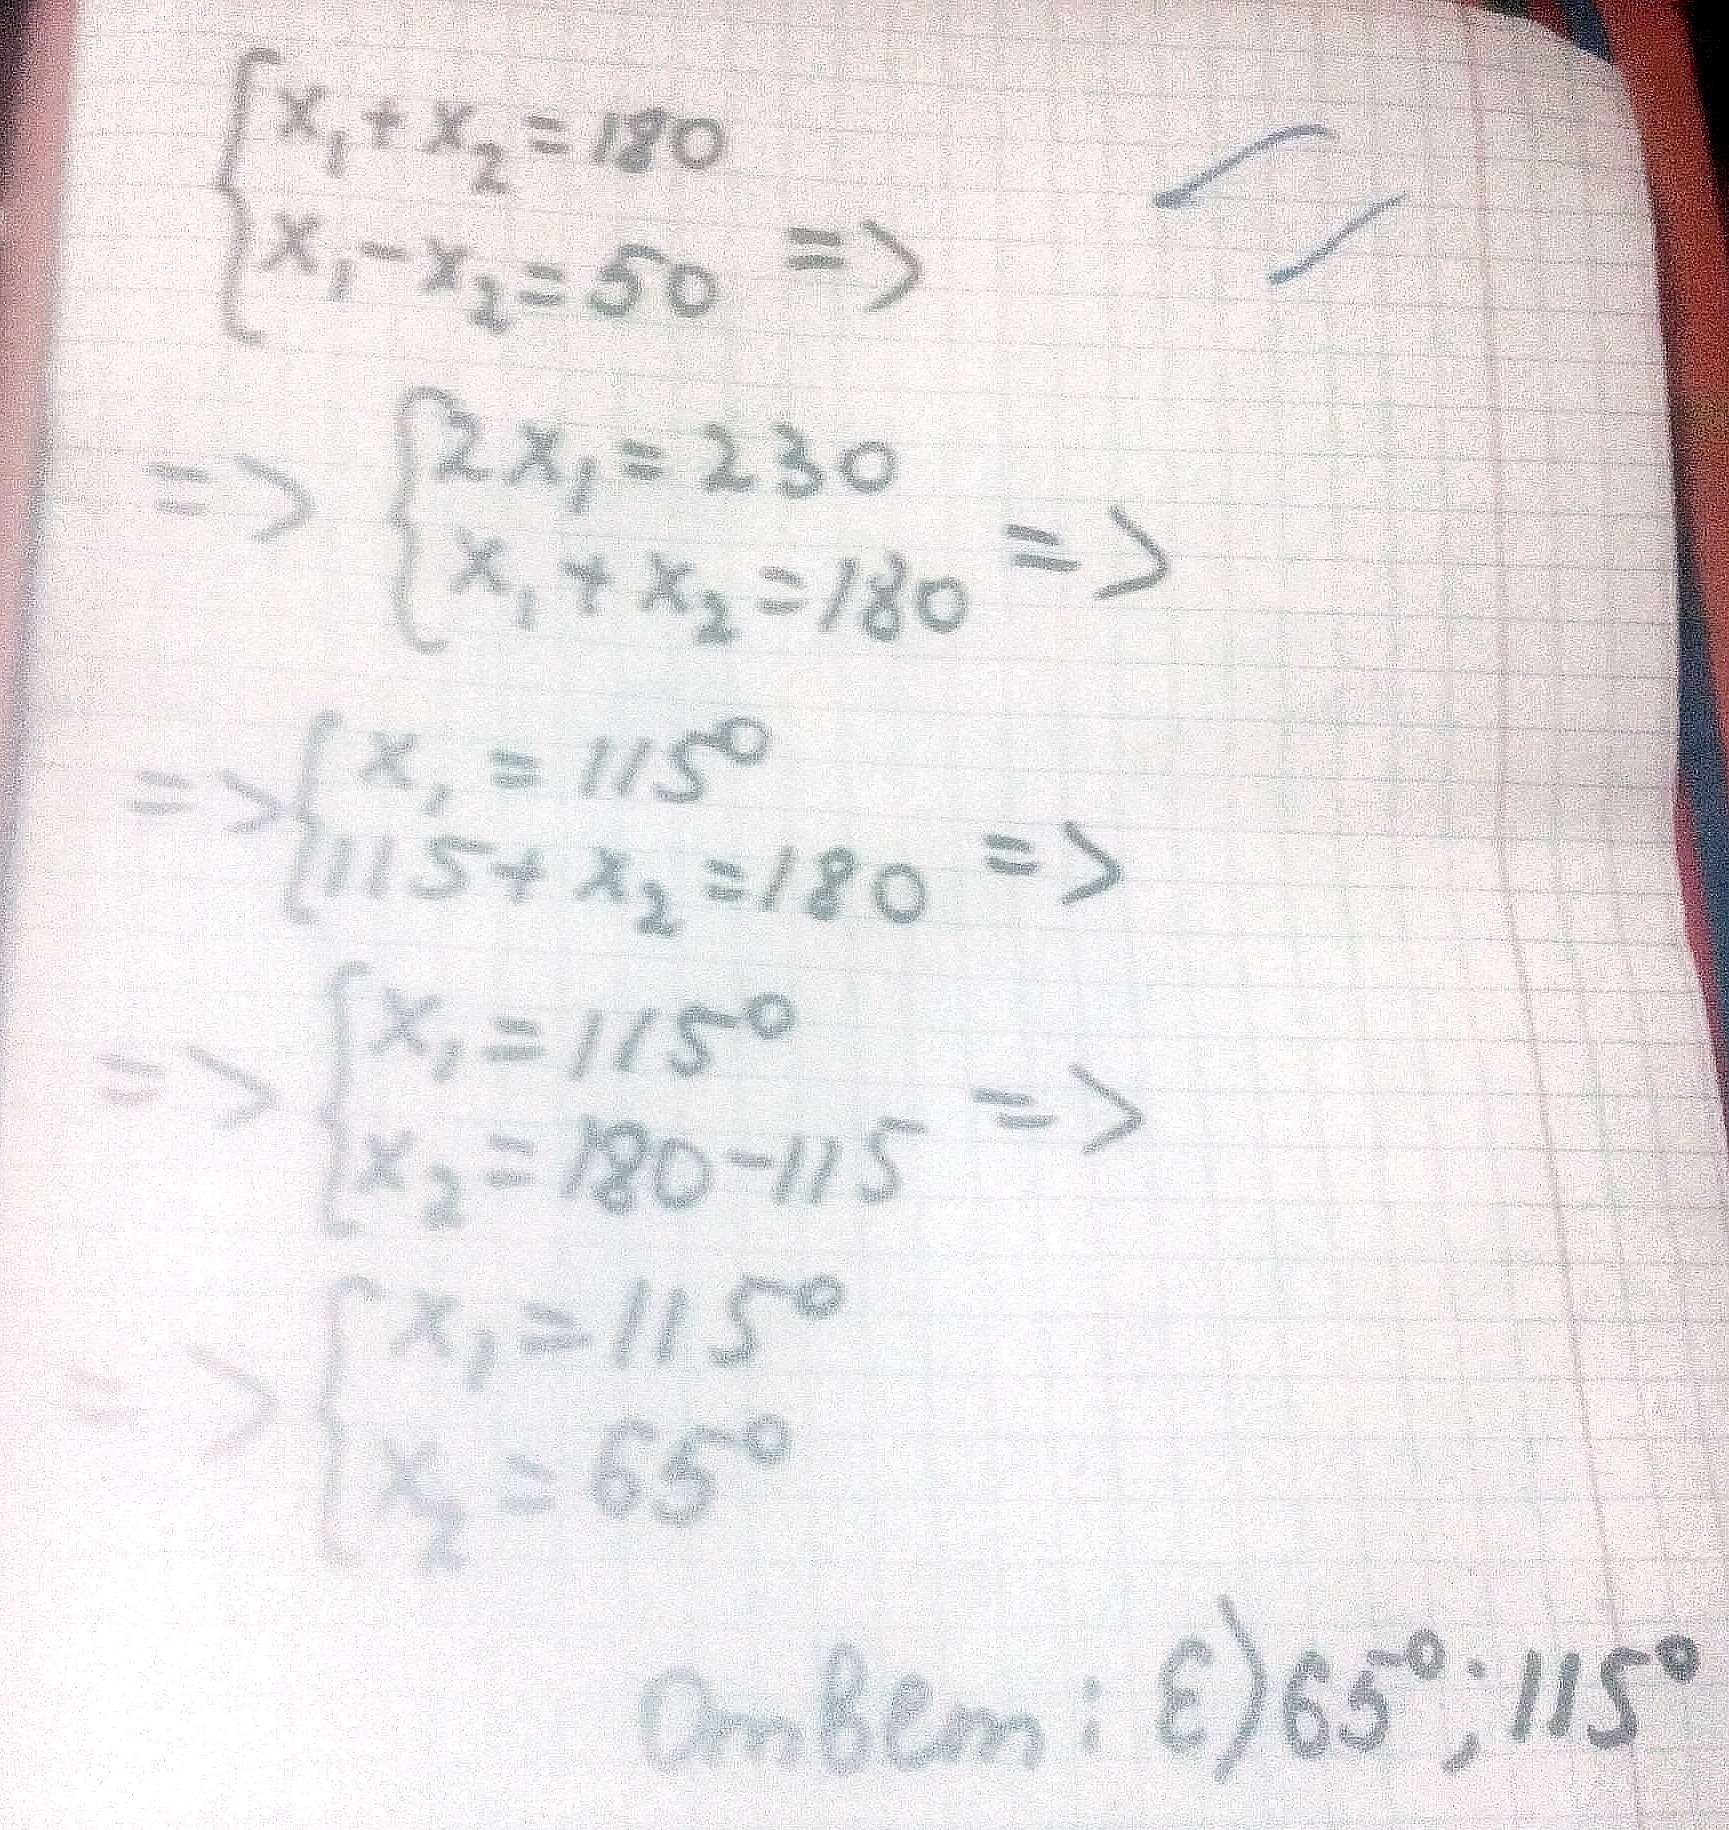 x₁+x₂=180
x₁-x₂=50 =>
=> 2x₁=230
x₁+x₂=180 =>
=> x₁=115⁰
115+x₂=180 =>
=> x₁=115⁰
x₂=180-115 =>
=> x₁=115⁰
x₂=65⁰
Ответ: Е) 65⁰; 115⁰